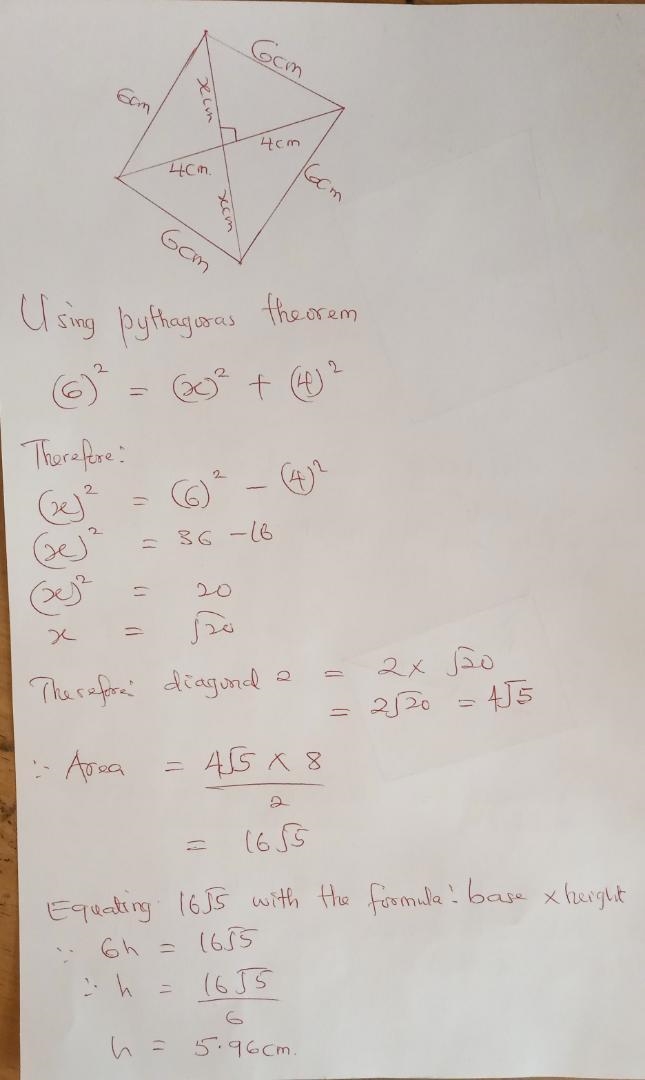 6cm
6cm
xcm
4cm
4cm.
6cm
xcm
6cm
Using pythagoras theorem
(6)² = (x)² + (4)²
Therefore:
(x)² = (6)² - (4)²
(x)² = 36 - 16
(x)² = 20
x = √20
Therefore: diagonal 2 = 2 x √20
= 2√20 = 4√5
∴ Area = 4√5 x 8
2
= 16√5
Equating 16√5 with the formula: base x height
∴ 6h = 16√5
∴ h = 16√5
6
h = 5.96cm.